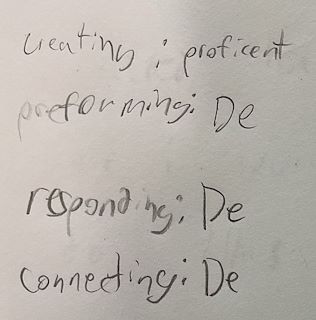 creating : proficent
preforming: De
responding: De
connecting: De